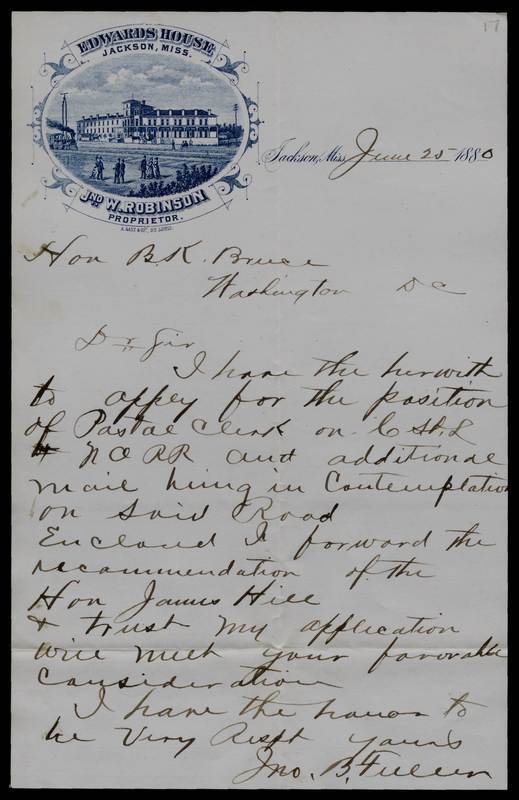 17
EDWARDS HOUSE
JACKSON, MISS.
JNO W. ROBINSON
PROPRIETOR.
Jackson, Miss, June 25 1880
Hon B.K. Bruce
Washington DC
Dr Sir
I have the herwith
to appley for the position
of Postal Clerk on C St. L
& N O RR and additional
mail being in Contemplation
on Said Road
Enclosed I forward the
recommendation of the
Hon James Hill
& trust my application
will meet your favorable
Consideration
I have the honor to
be Very Respt yours
Jno. B. Fuller